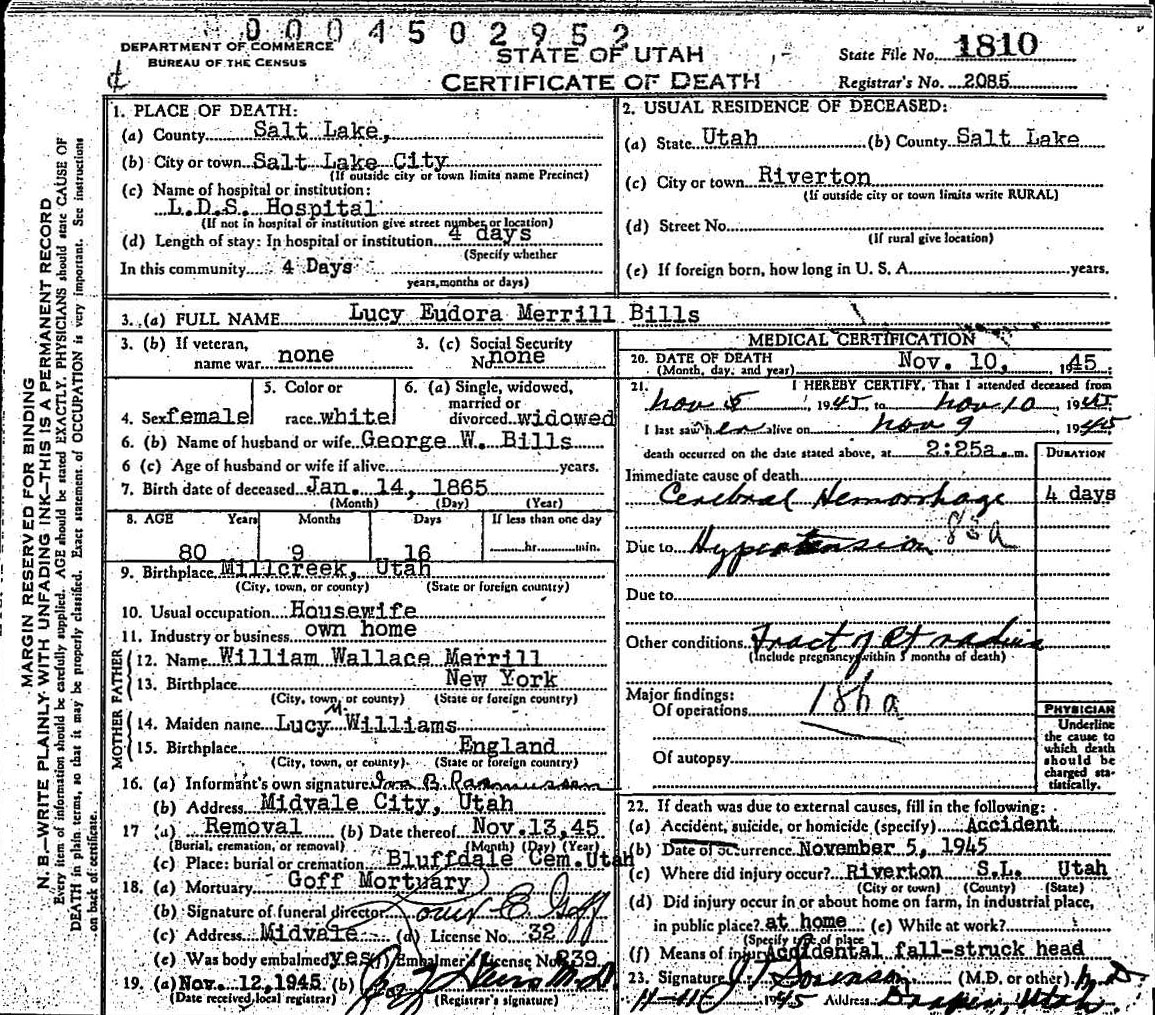 0004502952
DEPARTMENT OF COMMERCE
BUREAU OF THE CENSUS
STATE OF UTAH
CERTIFICATE OF DEATH
State File No. 1810
Registrar's No. 2085
MARGIN RESERVED FOR BINDING
N. B.—WRITE PLAINLY WITH UNFADING INK—THIS IS A PERMANENT RECORD
Every item of information should be carefully supplied. AGE should be stated EXACTLY. PHYSICIANS should state CAUSE OF
DEATH in plain terms, so that it may be properly classified. Exact statement of OCCUPATION is very important. See instructions
on back of certificate.
1. PLACE OF DEATH:
(a) County Salt Lake,
(b) City or town Salt Lake City
(If outside city or town limits name Precinct)
(c) Name of hospital or institution:
L.D.S. Hospital
(If not in hospital or institution give street number or location)
(d) Length of stay: In hospital or institution 4 days
(Specify whether
In this community 4 Days
years, months or days)
2. USUAL RESIDENCE OF DECEASED:
(a) State Utah (b) County Salt Lake
(c) City or town Riverton
(If outside city or town limits write RURAL)
(d) Street No.
(If rural give location)
(e) If foreign born, how long in U. S. A. years.
3. (a) FULL NAME Lucy Eudora Merrill Bills
3. (b) If veteran,
name war none
3. (c) Social Security
No. none
4. Sex female
5. Color or
race white
6. (a) Single, widowed,
married or
divorced widowed
6. (b) Name of husband or wife George W. Bills
6 (c) Age of husband or wife if alive years.
7. Birth date of deceased Jan. 14, 1865
(Month) (Day) (Year)
8. AGE Years Months Days If less than one day
80 9 16 hr. min.
9. Birthplace Millcreek, Utah
(City, town, or county) (State or foreign country)
10. Usual occupation Housewife
11. Industry or business own home
FATHER
12. Name William Wallace Merrill
13. Birthplace New York
(City, town, or county) (State or foreign country)
MOTHER
14. Maiden name Lucy M. Williams
15. Birthplace England
(City, town, or county) (State or foreign country)
16. (a) Informant's own signature B. Rasmussen
(b) Address Midvale City, Utah
17 (a) Removal (b) Date thereof Nov.13,45
(Burial, cremation, or removal) (Month) (Day) (Year)
(c) Place: burial or cremation Bluffdale Cem.Utah
18. (a) Mortuary Goff Mortuary
(b) Signature of funeral director Louis E. Goff
(c) Address Midvale (d) License No. 32
(e) Was body embalmed yes (f) Embalmer's License No. 239
19. (a) Nov. 12,1945 (b) M.D.
(Date received local registrar) (Registrar's signature)
MEDICAL CERTIFICATION
20. DATE OF DEATH Nov. 10, 1945
(Month, day, and year)
21. I HEREBY CERTIFY, That I attended deceased from
Nov 5, 1945, to Nov 10, 1945
I last saw her alive on Nov 9 1945
death occurred on the date stated above, at 2:25a.m. DURATION
Immediate cause of death
Cerebral Hemorrhage 4 days
Due to Hypertension 83a
Due to
Other conditions Fract of Rt radius
(Include pregnancy within 3 months of death)
Major findings:
Of operations 186a
Of autopsy
PHYSICIAN
Underline
the cause to
which death
should be
charged sta-
tistically.
22. If death was due to external causes, fill in the following:
(a) Accident, suicide, or homicide (specify) Accident
(b) Date of occurrence November 5, 1945
(c) Where did injury occur? Riverton S.L. Utah
(City or town) (County) (State)
(d) Did injury occur in or about home on farm, in industrial place,
in public place? at home (e) While at work?
(Specify type of place
(f) Means of injury Accidental fall-struck head
23. Signature J. Sorenson (M.D. or other) M.D
1945 Address Draper, Utah